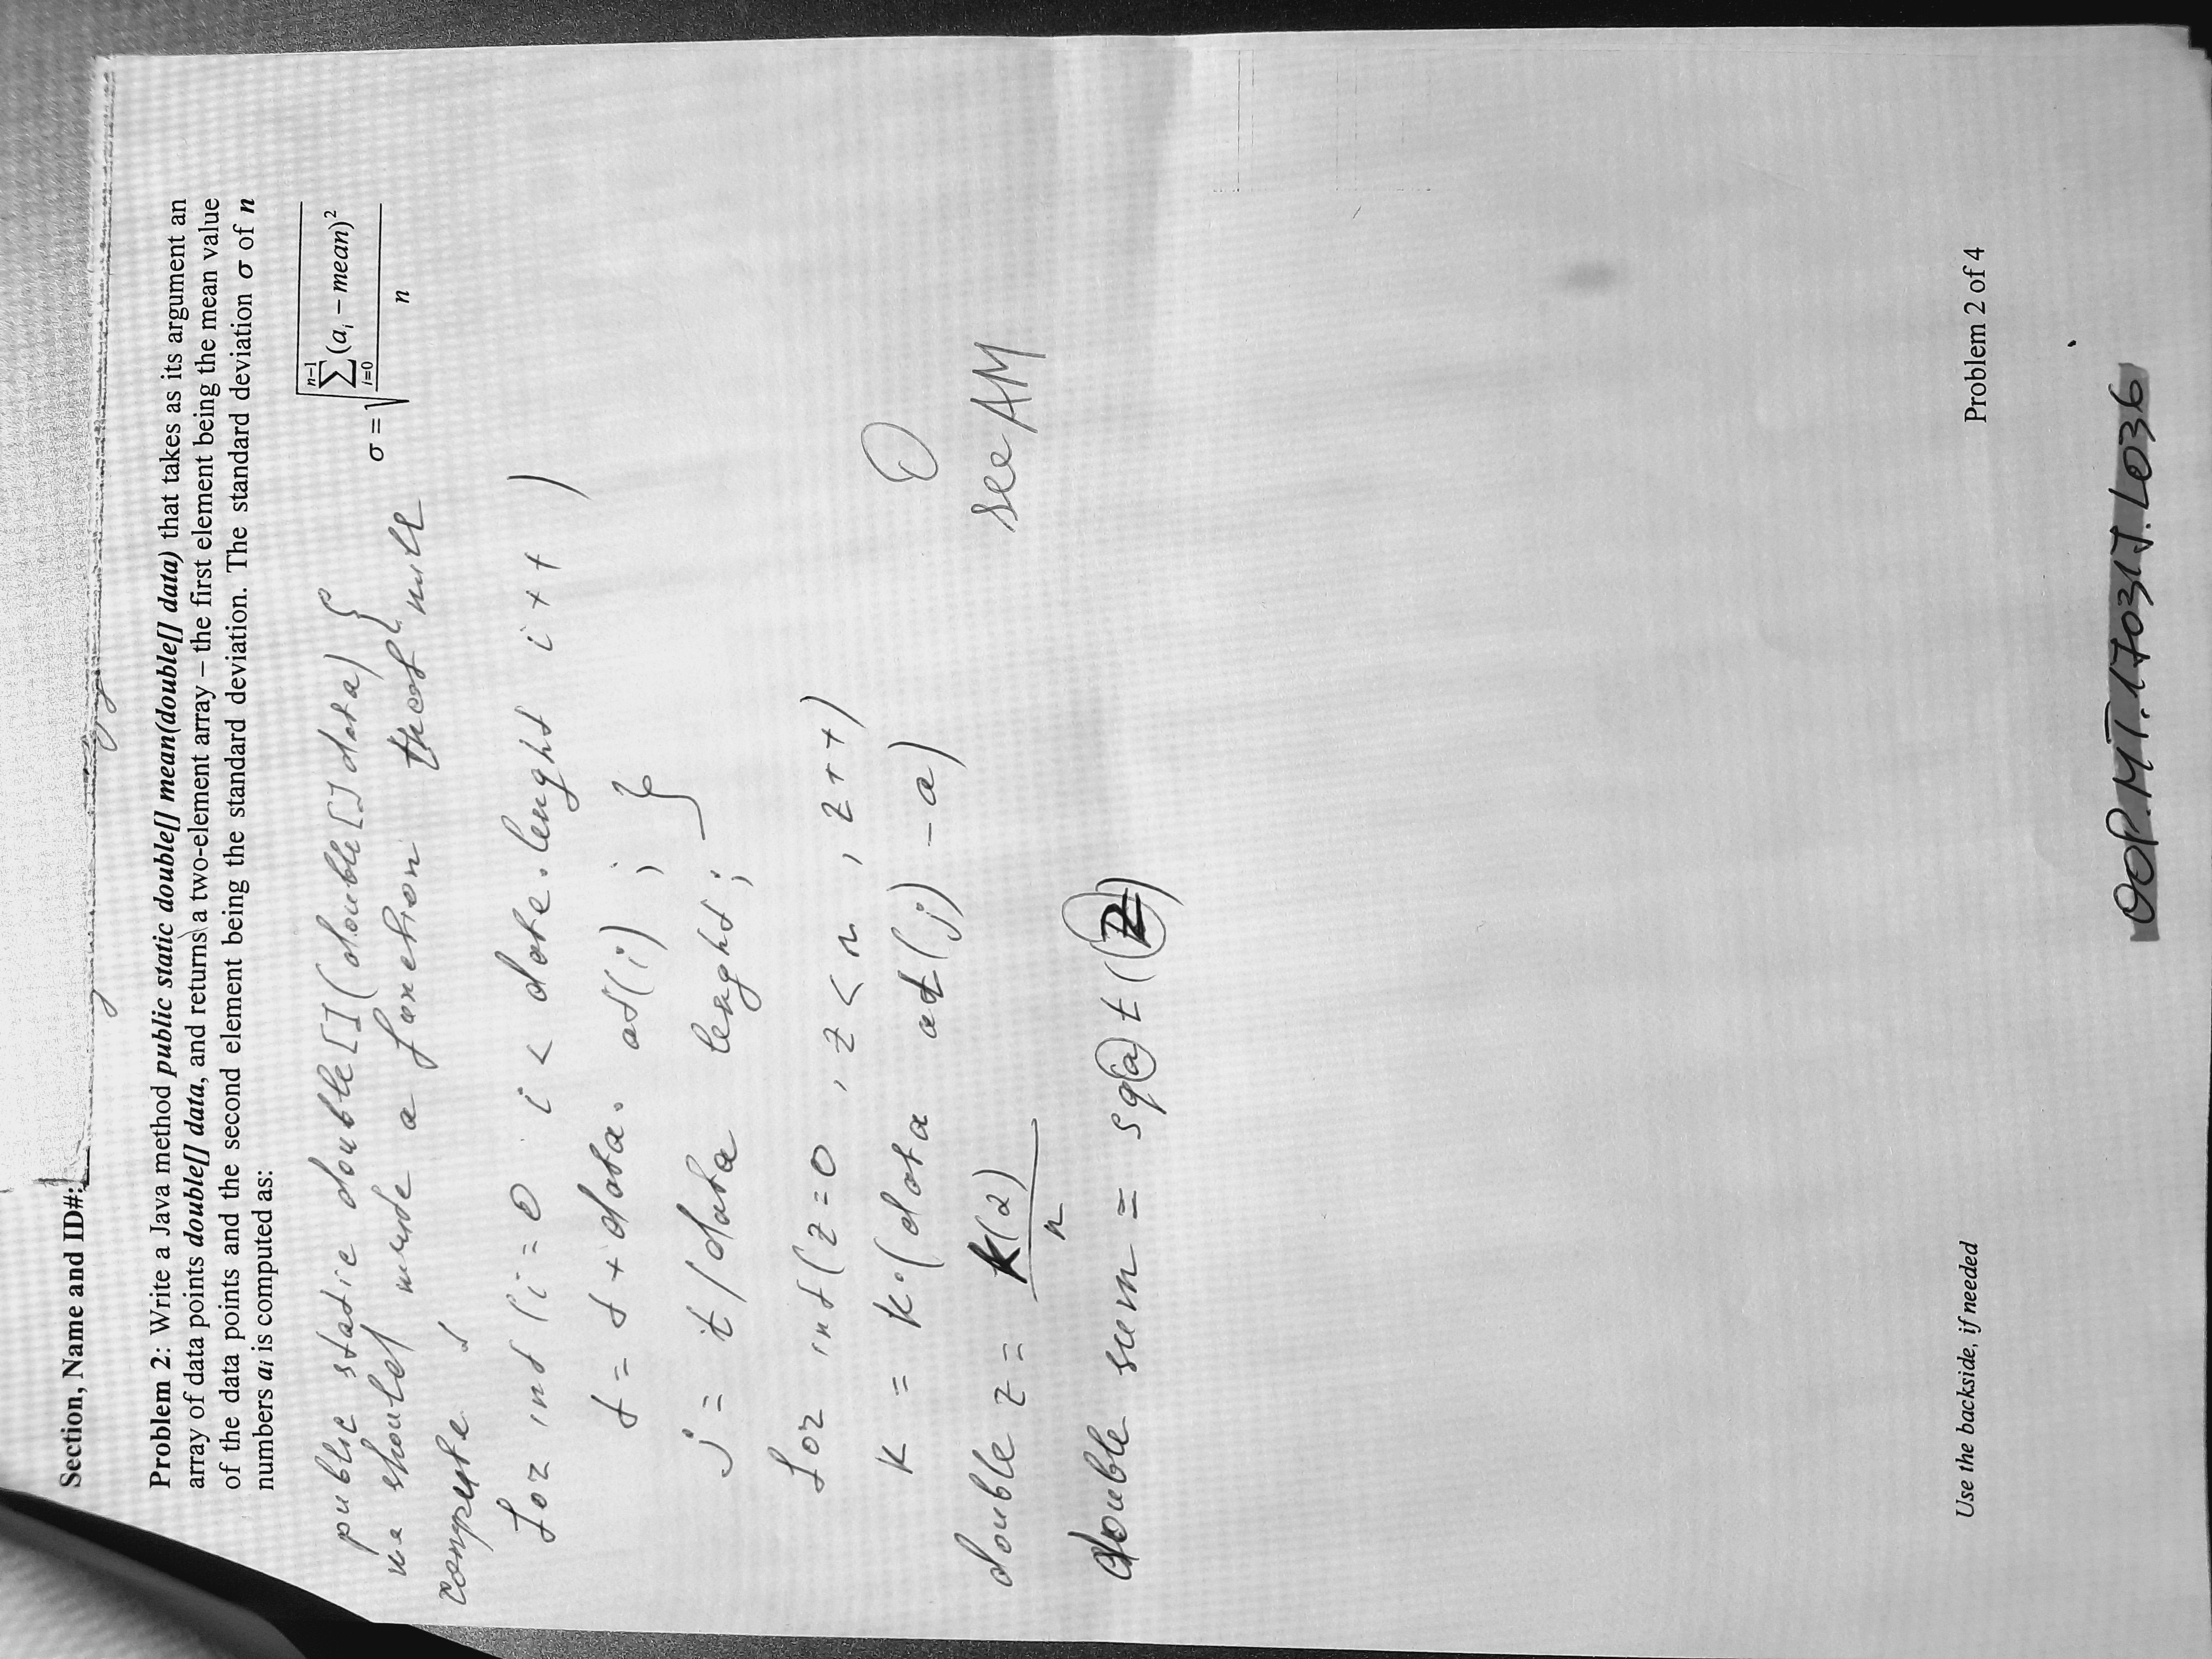 Section, Name and ID#:
Problem 2: Write a Java method public static double[] mean(double[] data) that takes as its argument an
array of data points double[] data, and returns a two-element array – the first element being the mean value
of the data points and the second element being the standard deviation. The standard deviation σ of n
numbers aᵢ is computed as:
σ = √(∑_{i=0}^{n-1} (aᵢ – mean)² / n)
public static double [] (double [] data) {
we should write a function that will
compute
for int (i = 0 i < date.lenght i ++ )
t = t + data. at(i) ; }
j = t / data lenght ;
for int (z = 0 , z < n , z ++)
k = k·(data at(j) - a)
double z = k(2) / n
double sum = sqat (z)
0
see AM
Use the backside, if needed
Problem 2 of 4
OOP.MT.170317.L036